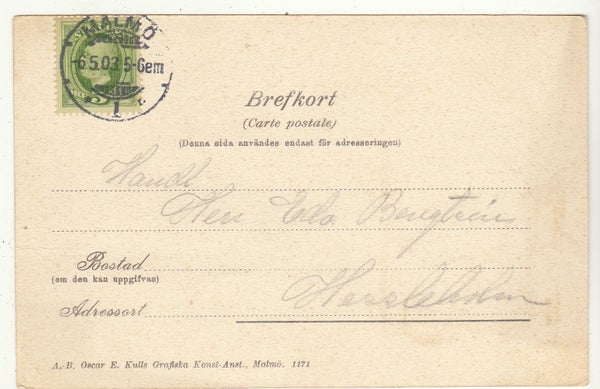 MALMÖ
6.5.03 5-6em
1
5
Brefkort
(Carte postale)
(Denna sida användes endast för adresseringen)
Handl
Herr Bengtson
Bostad
(om den kan uppgifvas)
Adressort
A.-B. Oscar E. Kulls Grafiska Konst-Anst., Malmö. 1171